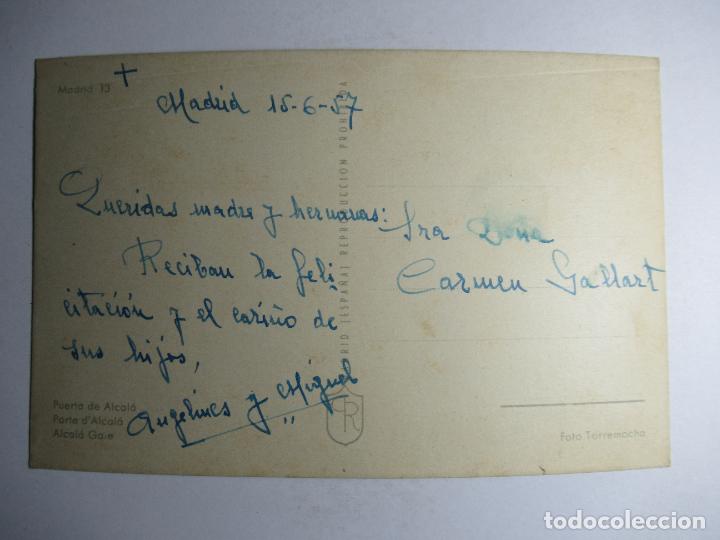 Madrid 13
+
Madrid 15-6-57
Queridas madre y hermanas:
Reciban la feli
citación y el cariño de
sus hijos,
Angelines y Miguel
Sra Doña
Carmen Gallart
Puerta de Alcalá
Porte d'Alcalá
Alcalá Gate
RID (ESPAÑA) REPRODUCCION PROHIBIDA
R
Foto Torremocha
todocoleccion.net